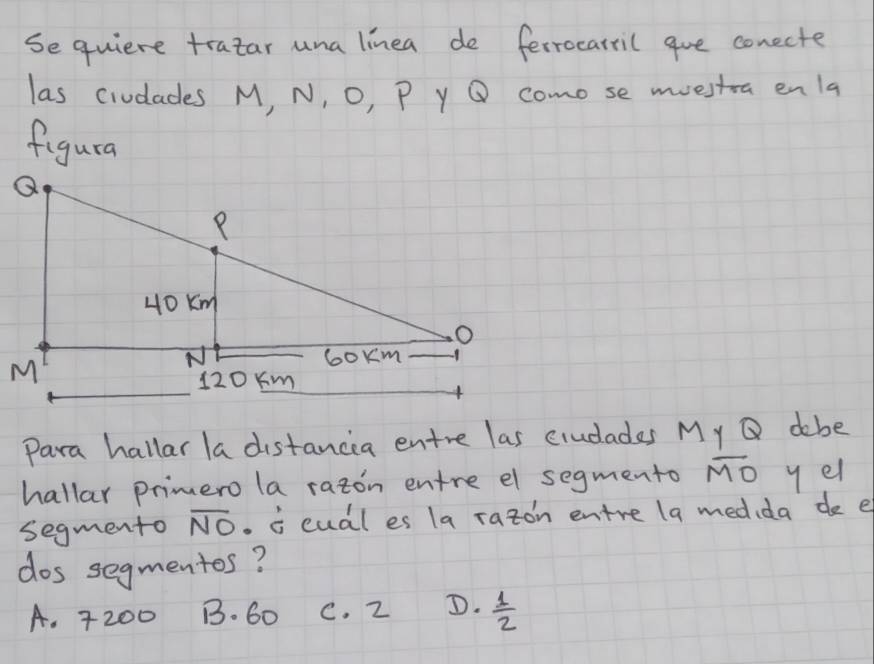 Se quiere trazar una línea de ferrocarril que conecte
las ciudades M, N, O, P y Q como se muestra en la
figura
Q
P
40 Km
O
M
N
60 Km
120 Km
Para hallar la distancia entre las ciudades M y Q debe
hallar primero la razón entre el segmento M̅O̅ y el
segmento N̅O̅. ¿cuál es la razón entre la medida de e
dos segmentos?
A. 7200 B. 60 C. 2 D. 1/2